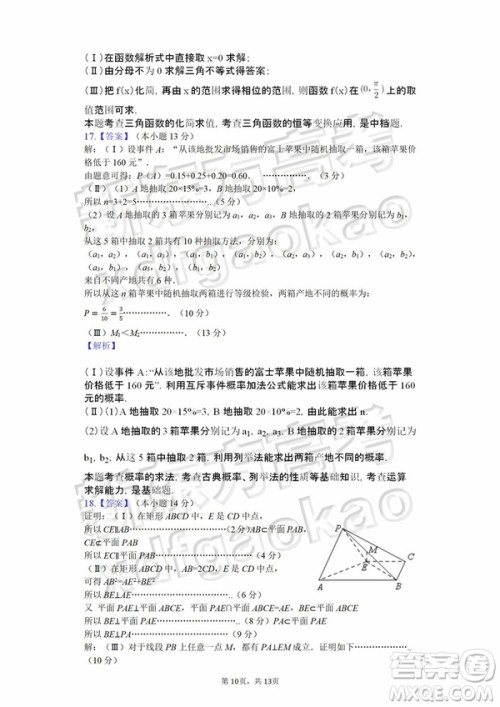 (Ⅰ)在函数解析式中直接取 x=0 求解;
(Ⅱ)由分母不为 0 求解三角不等式得答案;
(Ⅲ)把 f(x)化简,再由 x 的范围求得相位的范围,则函数 f(x)在(0,π/2)上的取
值范围可求.
本题考查三角函数的化简求值,考查三角函数的恒等变换应用,是中档题.
17.【答案】(本小题 13 分)
解:(Ⅰ)设事件 A:“从该地批发市场销售的富士苹果中随机抽取一箱,该箱苹果价
格低于 160 元”.
由题意可得:P(A)=0.15+0.25+0.20=0.60. ……………(3 分)
(Ⅱ)(1)A 地抽取 20×15%=3,B 地抽取 20×10%=2,
所以 n=3+2=5……………..(6 分)
(2)设 A 地抽取的 3 箱苹果分别记为 a₁,a₂,a₃,B 地抽取的 2 箱苹果分别记为 b₁,
b₂,
从这 5 箱中抽取 2 箱共有 10 种抽取方法,
来自不同产地共有 6 种.
所以从这 n 箱苹果中随机抽取两箱进行等级检验,两箱产地不同的概率为:
P=6/10=3/5……………..(10 分)
(Ⅲ)M₁<M₂……………..(13 分)
【解析】
(Ⅰ)设事件 A:“从该地批发市场销售的富士苹果中随机抽取一箱,该箱苹果
价格低于 160 元”.利用互斥事件概率加法公式能求出该箱苹果价格低于 160
元的概率.
(Ⅱ)(1)A 地抽取 20×15%=3,B 地抽取 20×10%=2,由此能求出 n.
(2)设 A 地抽取的 3 箱苹果分别记为 a₁,a₂,a₃;B 地抽取的 2 箱苹果分别记为
b₁,b₂,从这 5 箱中抽取 2 箱,利用列举法能求出两箱产地不同的概率.
本题考查概率的求法,考查古典概率、列举法等基础知识,考查运算
求解能力,是基础题.
18.【答案】(本小题 14 分)
证明:(Ⅰ)在矩形 ABCD 中,E 是 CD 中点,
所以 CE∥AB……………………(2 分)AB⊂平面 PAB,
CE⊄平面 PAB
所以 EC∥平面 PAB……………..(4 分)
(Ⅱ)在矩形 ABCD 中,AB=2CD,E 是 CD 中点,
可得 AB²=AE²+BE²
所以 BE⊥AE……………………..(6 分)
又 平面 PAE⊥平面 ABCE,平面 PAE∩平面 ABCE=AE,
所以 BE⊥平面 PAE……………………..(8 分)PA⊂平面 PAE
所以 BE⊥PA……………………(9 分)
证明:(Ⅲ)对于线段 PB 上任意一点 M,都有 PA⊥EM 成立.证明如下…………………..
(10 分)
P
M
C
E
A
B
第 10页,共 13页
答案圈
MXQE.COM
新东方高考
xdfgaokao